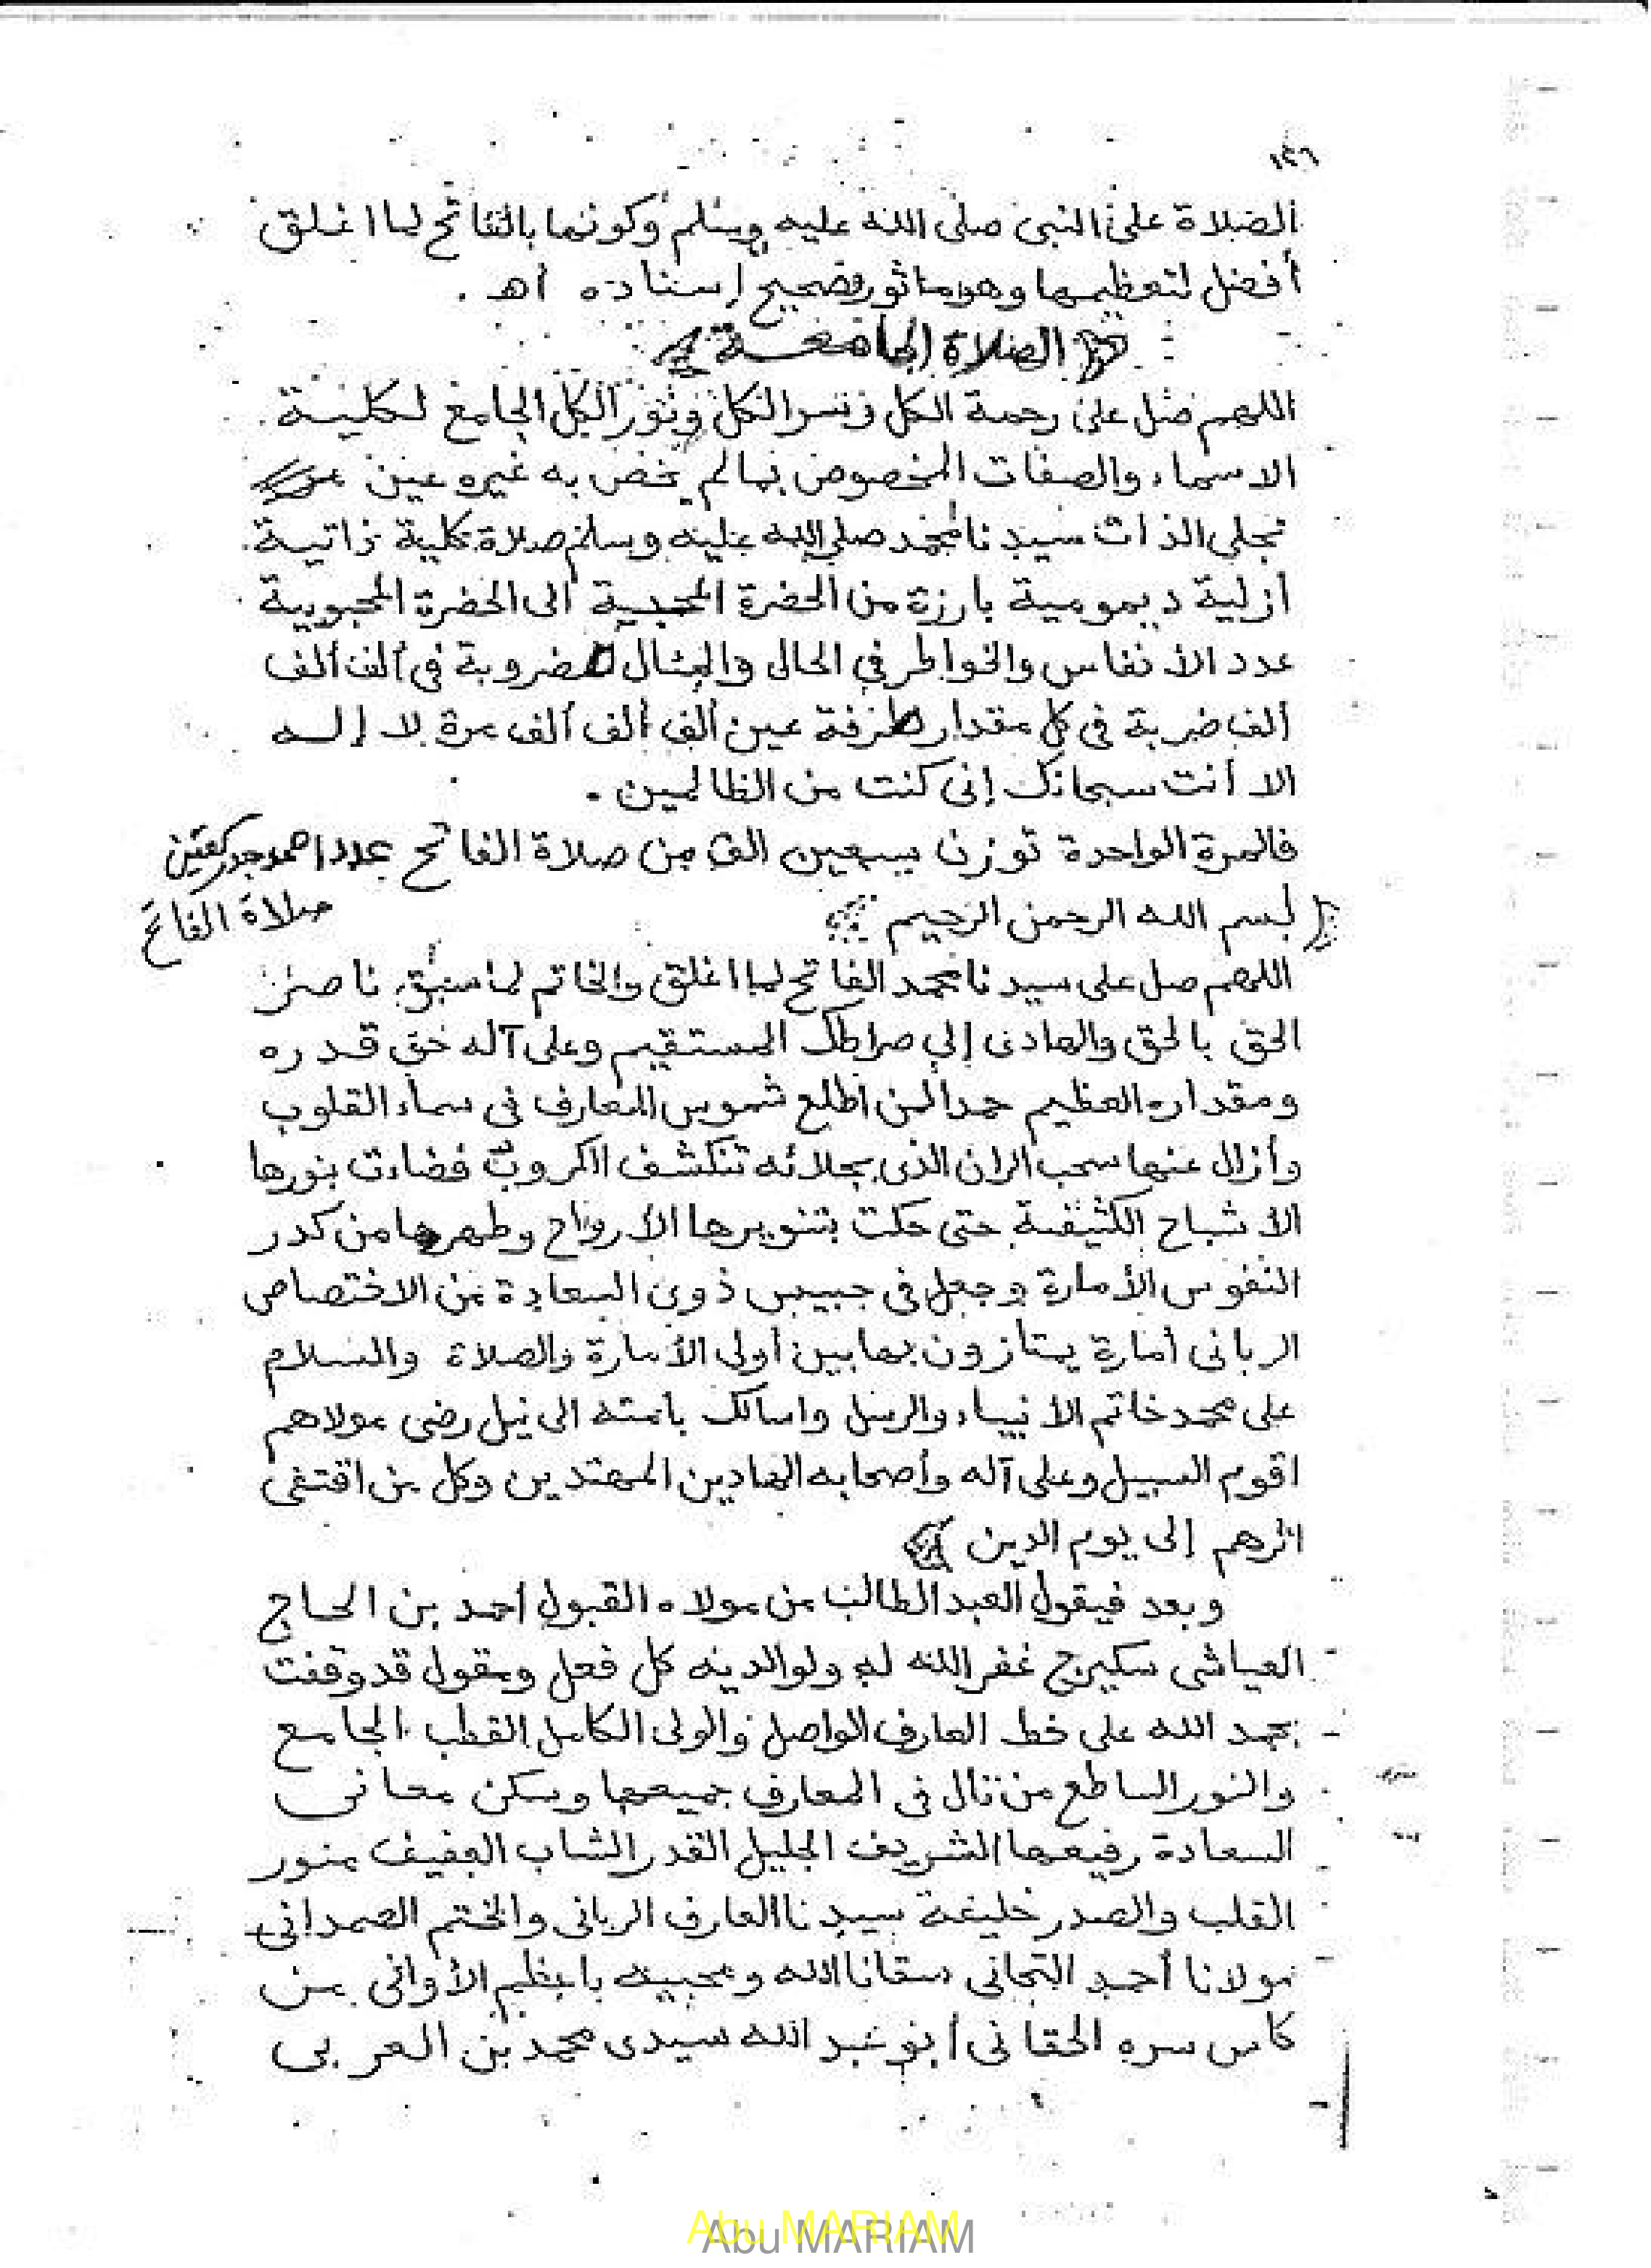 ١٤٦
الصلاة على النبى صلى الله عليه وسلم وكونها بالفاتح لما اغلق
أفضل لتعظيمها وهو مأثور وصحيح إسناده اهـ .
الصلاة الجامعة
اللهم صل على رحمة الكل وسر الكل ونور الكل الجامع لكلية
الاسماء والصفات المخصوص بما لم يخص به غيره عين
تجلى الذات سيدنا محمد صلى الله عليه وسلم صلاة كلية ذاتية
أزلية ديمومية بارزة من الحضرة المحمدية الى الحضرة المحبوبية
عدد الأنفاس والخواطر فى الحال والمثال مضروبة فى ألف ألف
ألف ضربة فى كل مقدار طرفة عين ألف ألف ألف مرة لا إله
الا أنت سبحانك إنى كنت من الظالمين .
فالمرة الواحدة توزن بسبعين الف من صلاة الفاتح عدد احمد
صلاة الفاتح
بسم الله الرحمن الرحيم
اللهم صل على سيدنا محمد الفاتح لما اغلق والخاتم لما سبق ناصر
الحق بالحق والهادى إلى صراطك المستقيم وعلى آله حق قدره
ومقداره العظيم حمدا لمن اطلع شموس المعارف فى سماء القلوب
وأزال عنها سحب الران الذى بجلائه تنكشف الكروب فضاءت بنورها
الاشباح الكثيفة حتى حكت بتنويرها الأرواح وطهرها من كدر
النفوس الأمارة وجعل فى جبيس ذوى السعادة من الاختصاص
الربانى أمارة يمتازون بها بين أولى الأمارة والصلاة والسلام
على محمد خاتم الانبياء والرسل واسالك بامته الى نيل رضى مولاهم
اقوم السبيل وعلى آله وأصحابه الهادين المهتدين وكل من اقتفى
اثرهم إلى يوم الدين
وبعد فيقول العبد الطالب من مولاه القبول أحمد بن الحاج
العياشى سكيرج غفر الله له ولوالديه كل فعل ومقول قد وقفت
بحمد الله على خط العارف الواصل والولى الكامل القطب الجامع
والنور الساطع من نال فى المعارف جميعها وسكن معانى
السعادة رفيعها الشريف الجليل القدر الشاب العفيف منور
القلب والصدر خليفة سيدنا العارف الربانى والختم الصمدانى
مولانا أحمد التجانى سقانا الله ومحبيه باعظم الأوانى من
كاس سره الحقانى أبو عبد الله سيدى محمد بن العربى
Abu MARIAM